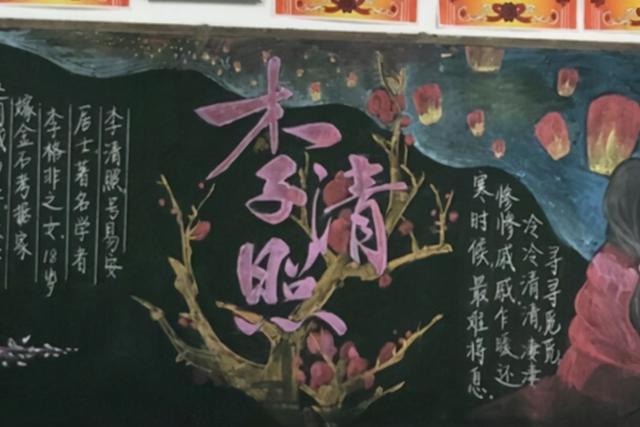 李清照
李清照号易安
居士著名学者
李格非之女.18岁
嫁金石考据家
寻寻觅觅
冷冷清清,凄凄
惨惨戚戚乍暖还
寒时候最难将息.